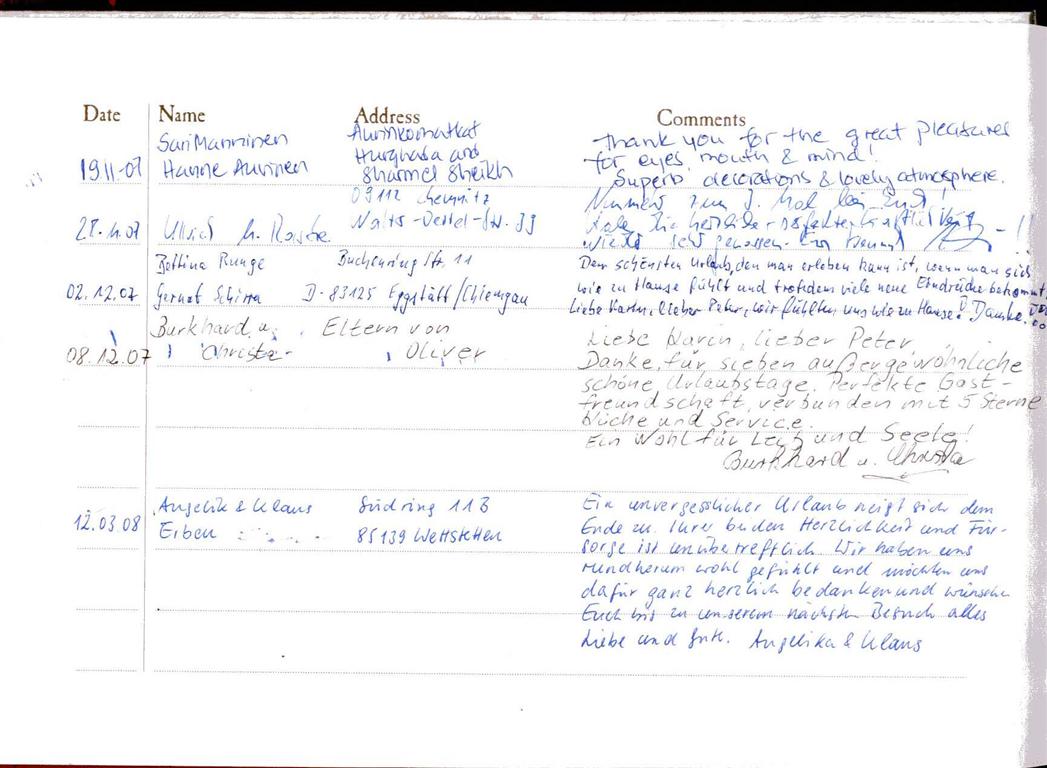 Date Name Address Comments
Sari Manninen Aurinkomatkat Thank you for the great pleasures
19.11.07 Hanne Auvinen Hurghada and for eyes, mouth & mind!
Sharmel Sheikh Superb decorations & lovely atmosphere.
09112 Chemnitz Nunmehr zum 3. Mal
28.11.07 Ulrich Walter-Oertel-Str. 39 habe die
wieder sehr genossen.
Bettina Runge Buchenring Str. 11 Den schönsten Urlaub, den man erleben kann ist, wenn man sich
02.12.07 Gernot Schirra D-83125 Eggstätt/Chiemgau wie zu Hause fühlt und trotzdem viele neue Eindrücke bekommt,
Liebe Karin, lieber Peter, wir fühlten uns wie zu Hause! Danke.
Burkhard u. Eltern von Liebe Karin, lieber Peter,
08.12.07 Christa Oliver Danke, für sieben außergewöhnliche
schöne Urlaubstage. Perfekte Gast-
freundschaft, verbunden mit 5 Sterne
Küche und Service.
Ein Wohl für Leib und Seele!
Burkhard u. Christa
Angelika & Klaus Südring 11B Ein unvergesslicher Urlaub neigt sich dem
12.03.08 Erben 85139 Wettstetten Ende zu. Ihrer beiden Herzlichkeit und Für-
sorge ist unübertrefflich. Wir haben uns
rundherum wohl gefühlt und möchten uns
dafür ganz herzlich bedanken und wünschen
Euch bis zu unserem nächsten Besuch alles
Liebe und Gute. Angelika & Klaus